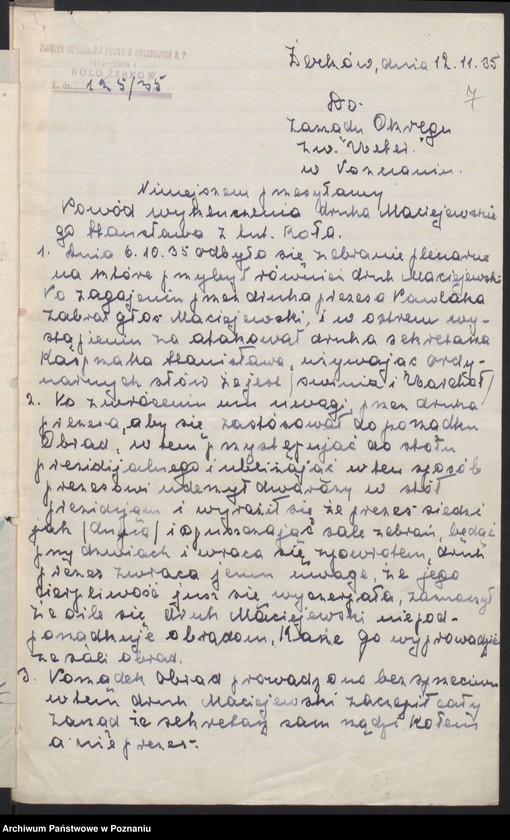 ZWIĄZEK WETERANÓW POWSTAŃ NARODOWYCH R. P.
1914–1919 r.
KOŁO ŻERKÓW
L. dz. 125/35
Żerków, dnia 12.11.35
7
Do
Zarządu Okręgu
Zw. "Weter."
w Poznaniu.
Niniejszem przesyłamy
Powód wykluczenia druha Maciejewskie
go Stanisława z tut. Koła.
1. Dnia 6.10.35 odbyło się zebranie plenarne
na które przybył również druh Maciejewski
Po zagajeniu przez druha prezesa Pawlaka
zabrał głos Maciejewski, i w ostrem wy-
stąpieniu za atakował druha sekretarza
Kaśprzaka Stanisława, używając ordy-
narnych słów że jest /świnia i
2. Po zwróceniu mu uwagi przez druha
prezesa, aby się zastósował do porządku
Obrad, w tem przystępując do stołu
prezidijalnego i ubliżając w ten sposób
prezesowi uderzył dwa razy w stół
prezidyjam i wyraził się że prezes siedzi
jak /dupa/ i opuszczając sale zebrań, będąć
przy drzwiach i wraca się zpowrotem, druh
prezes zwraca jemu uwagę, że jego
cierpliwość już się wyczerpała, zaznaczył
że oile się druh Maciejewski niepod-
ponadkuje obradom, Każe go wyprowadzić
ze sali obrad.
3. Porządek obrad prowadzono bez sprzeciwu
w tem druh Maciejewski zaczepił cały
zarząd że sekretarz sam rządzi Kołem
a nie prezes.
Archiwum Państwowe w Poznaniu